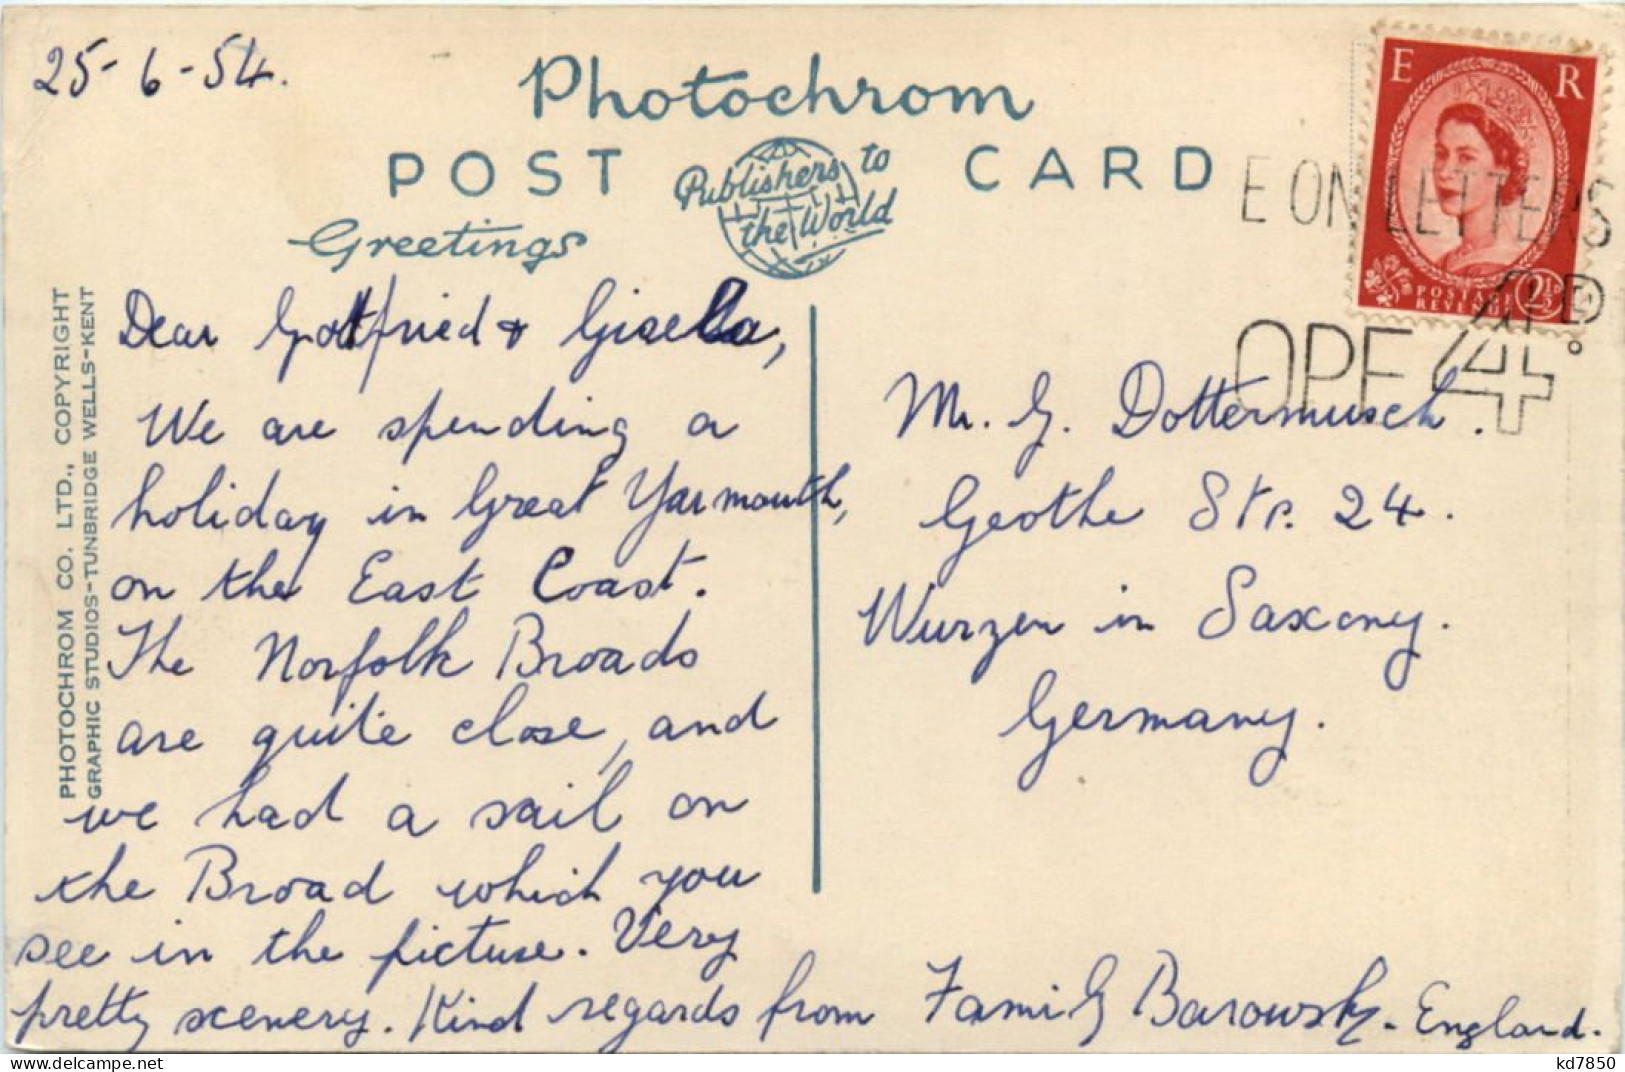 25-6-54.
Photochrom
POST CARD
Publishers to
the World
Greetings
E R
POSTAGE
REVENUE
2½D
E ON LETTERS
4D.
PHOTOCHROM CO. LTD., COPYRIGHT
GRAPHIC STUDIOS-TUNBRIDGE WELLS-KENT
Dear Gottfried & Gisella,
We are spending a
holiday in Great Yarmouth,
on the East Coast.
The Norfolk Broads
are quite close, and
we had a sail on
the Broad which you
see in the picture. Very
pretty scenery. Kind regards from Family Barowsky - England.
Mr. G. Dottermusch.
Geothe Str. 24.
Wurzen in Saxony.
Germany.
kd7850